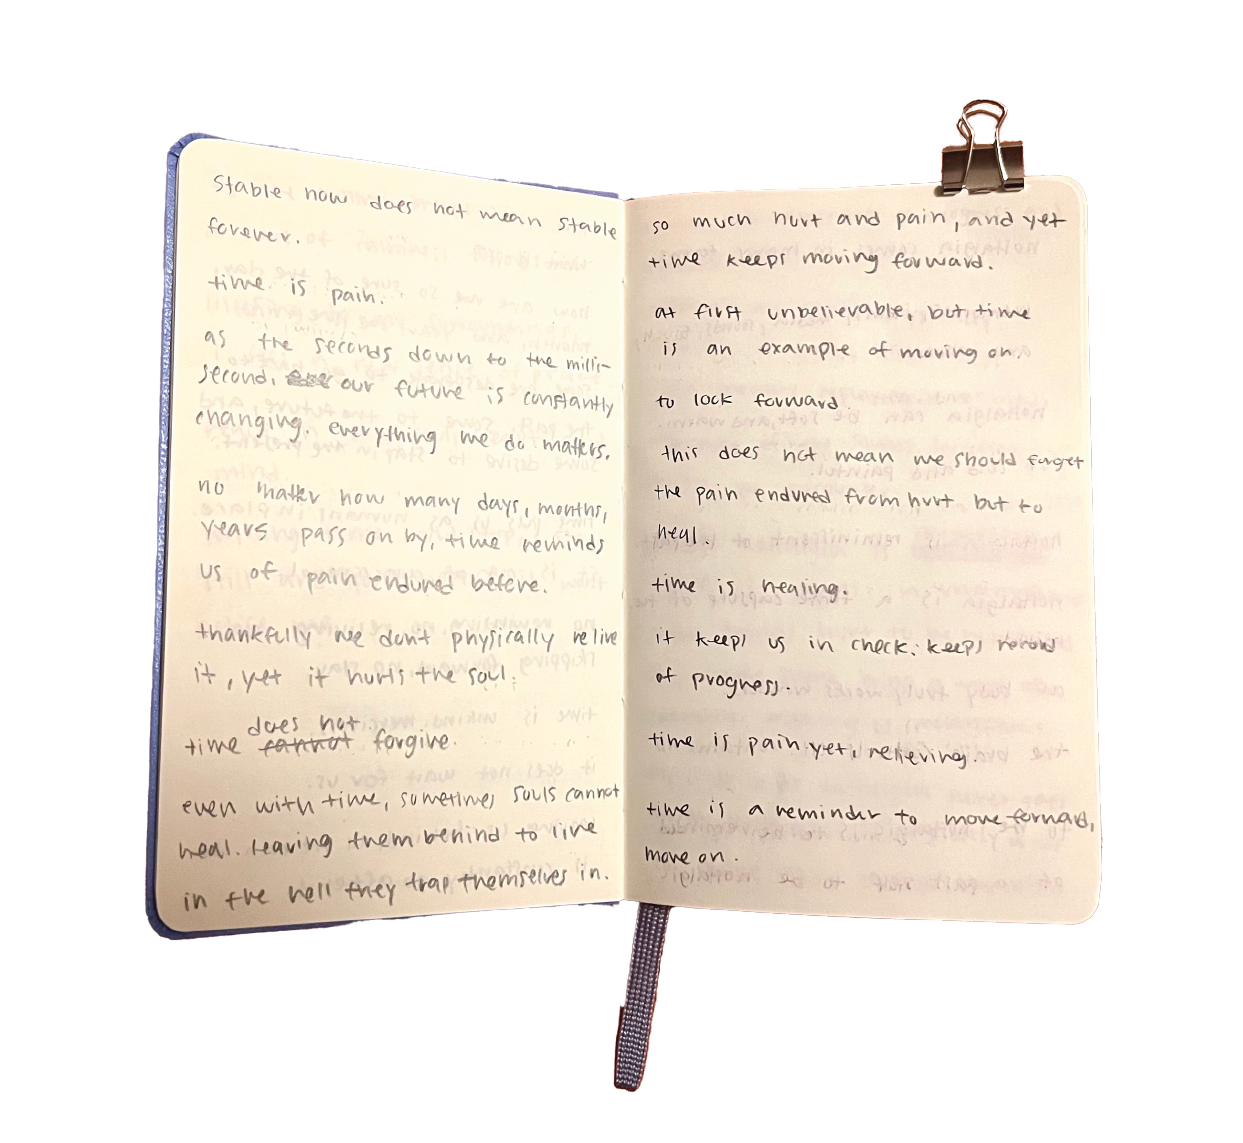 Stable now does not mean stable
forever.
time is pain.
as the seconds down to the milli-
second, our future is constantly
changing. everything we do matters.
no matter how many days, months,
years pass on by, time reminds
us of pain endured before.
thankfully we don't physically relive
it, yet it hurts the soul.
does not
time cannot forgive.
even with time, sometimes souls cannot
heal. leaving them behind to live
in the hell they trap themselves in.
so much hurt and pain, and yet
time keeps moving forward.
at first unbelievable, but time
is an example of moving on.
to look forward.
this does not mean we should forget
the pain endured from hurt. but to
heal.
time is healing.
it keeps us in check. keeps record
of progress.
time is pain yet, relieving.
time is a reminder to move forward,
move on.